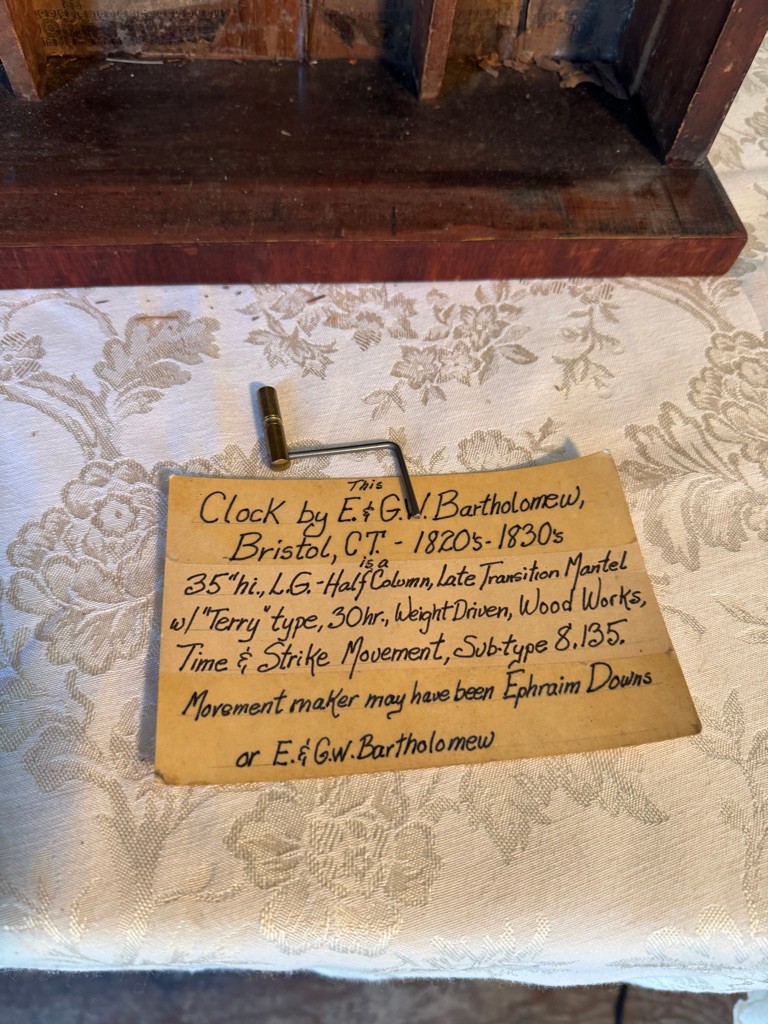 This
Clock by E. & G.W. Bartholomew,
Bristol, CT. - 1820's - 1830's
is a
35"hi., L.G.-Half Column, Late Transition Mantel
w/"Terry" type, 30hr., Weight Driven, Wood Works,
Time & Strike Movement, Sub-type 8.135.
Movement maker may have been Ephraim Downs
or E. & G.W. Bartholomew